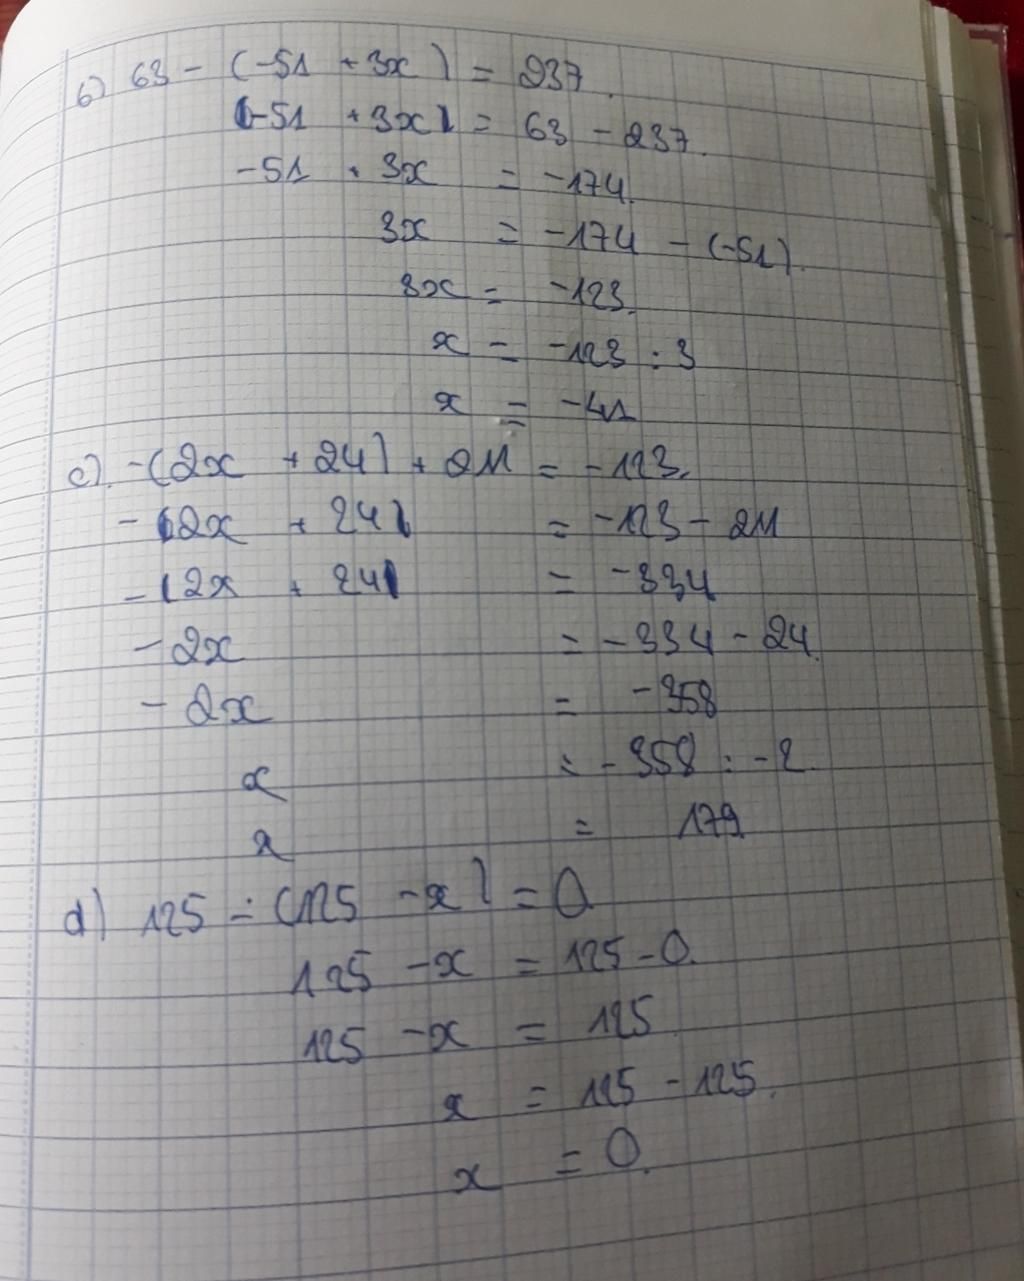 b) 63 - (-51 + 3x) = 237.
(-51 + 3x) = 63 - 237.
-51 + 3x = -174.
3x = -174 - (-51).
3x = -123.
x = -123 : 3
x = -41
c). -(2x + 24) + 211 = -123.
-(2x + 24) = -123 - 211
-(2x + 24) = -334
-2x = -334 - 24.
-2x = -358
x = -358 : -2.
x = 179
d) 125 - (125 - x) = 0
125 - x = 125 - 0.
125 - x = 125
x = 125 - 125.
x = 0.